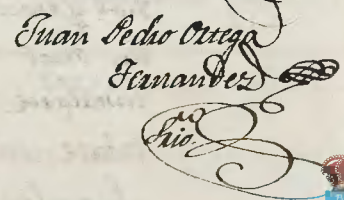 Juan Pedro Ortega
Fernandez